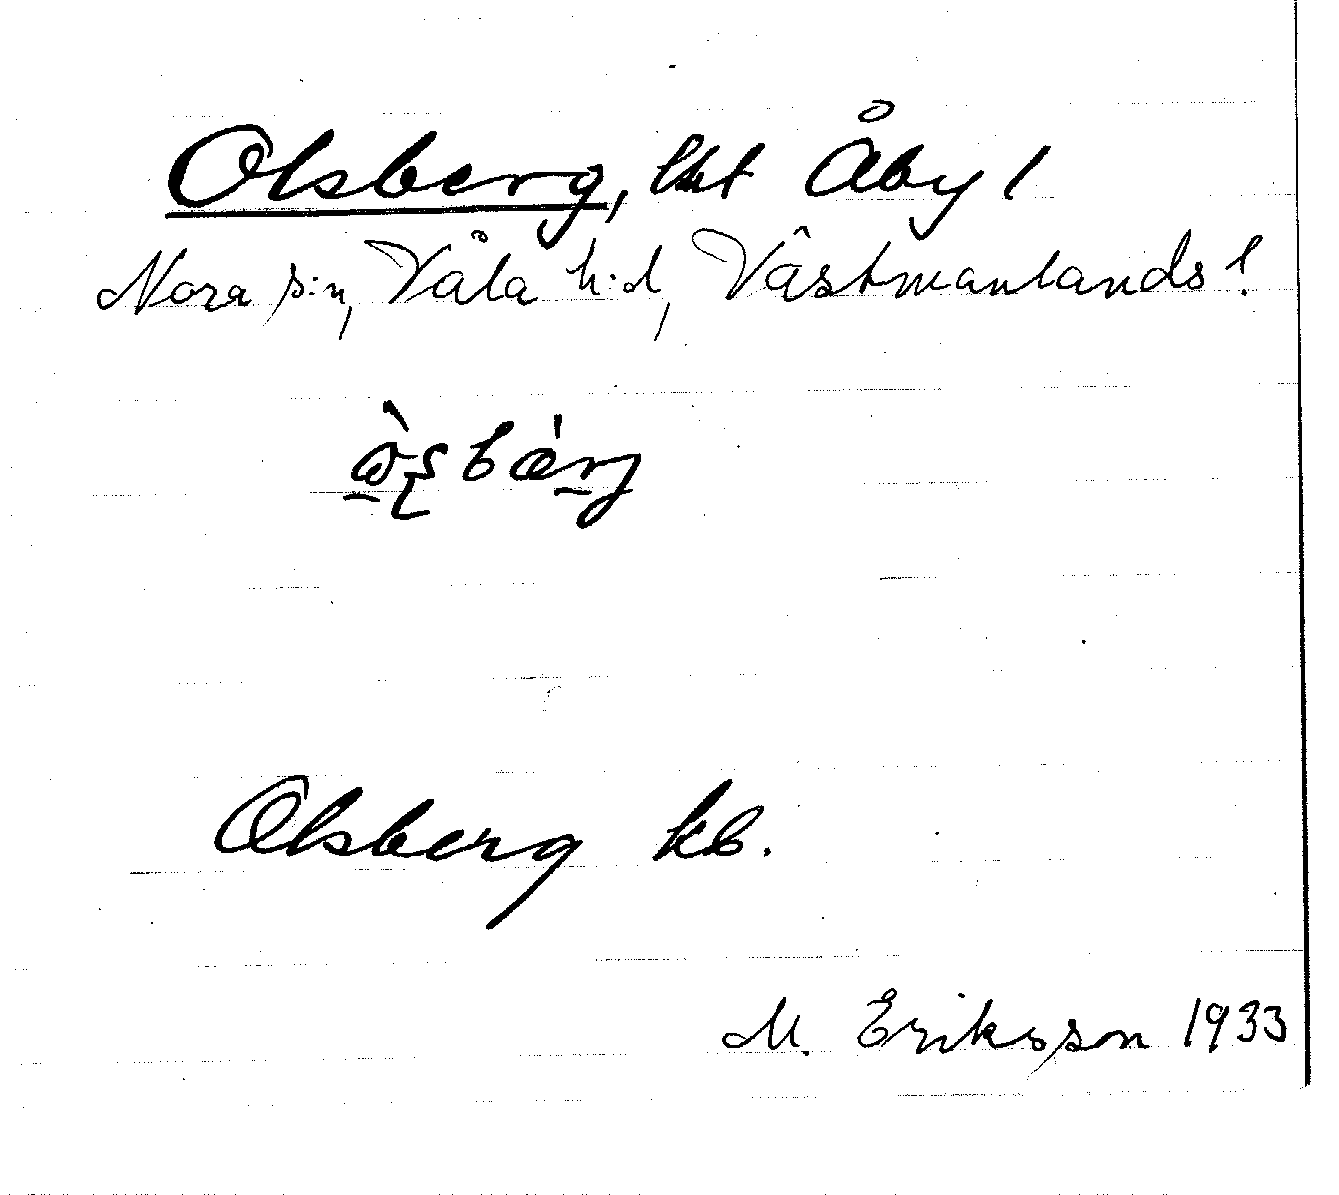 Olsberg, lht Åby 1
Nora s:n, Våla h:d, Västmanlands l.
Olsberg kb.
M. Eriksson 1933